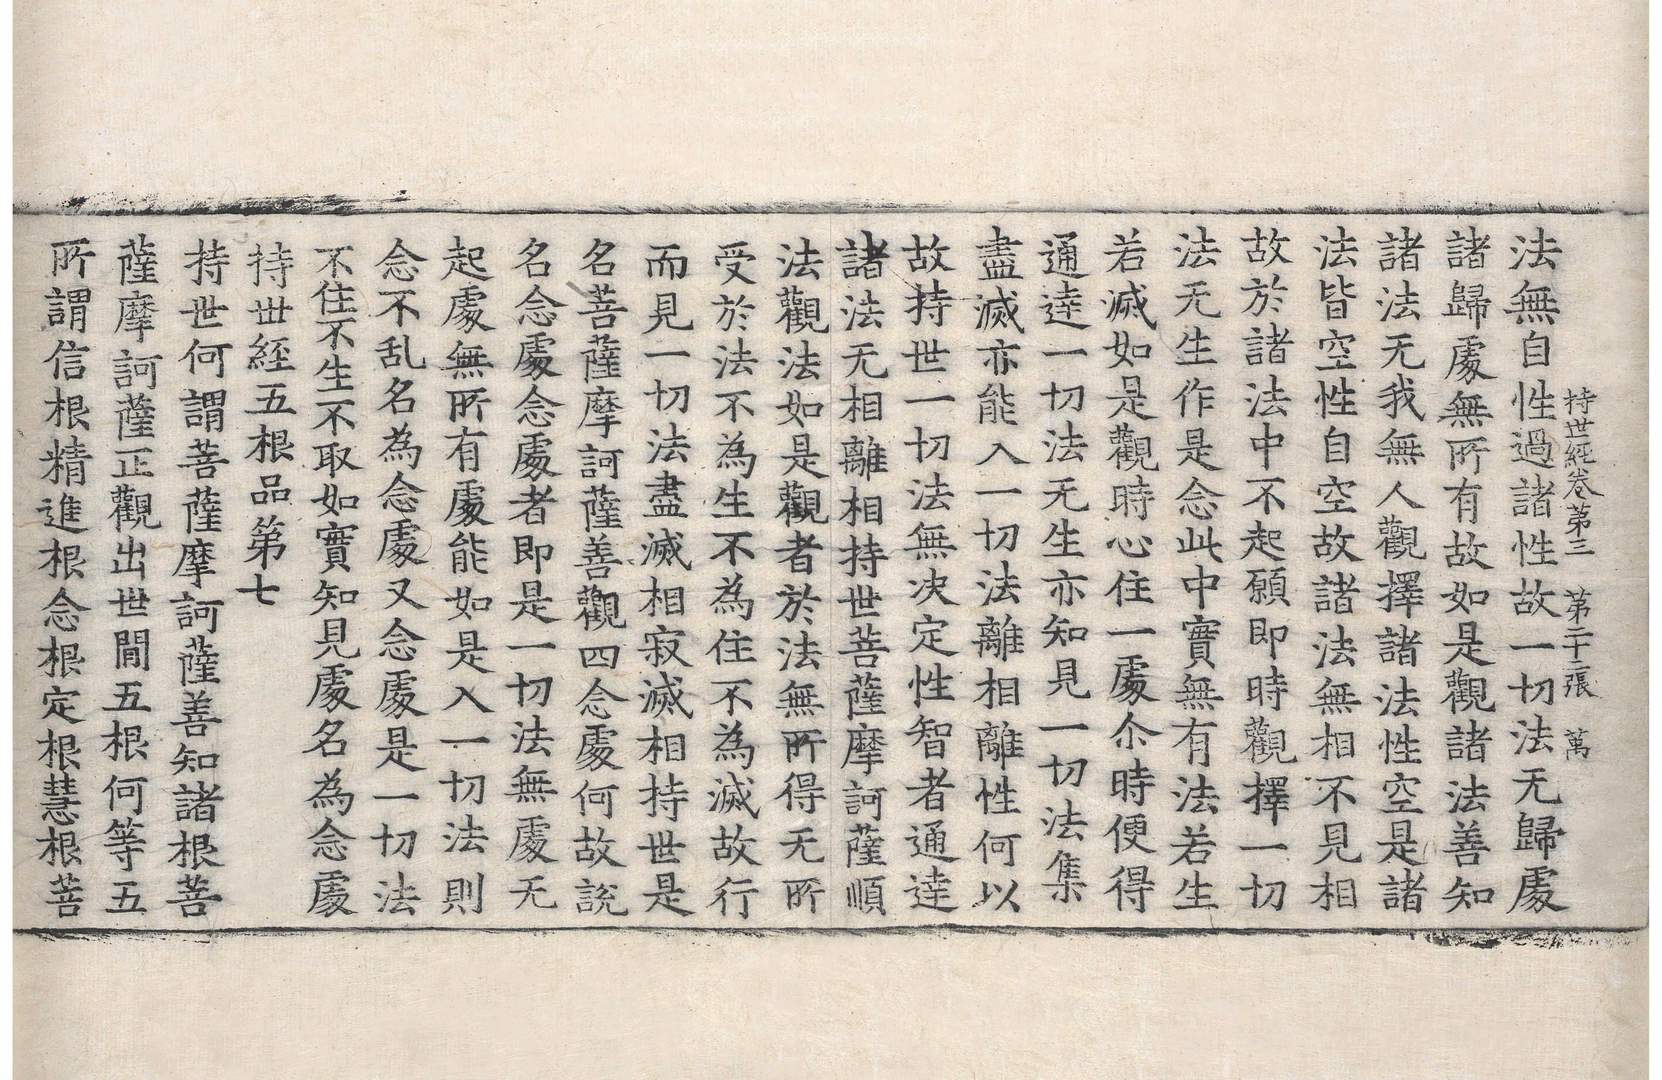 持世經卷第三 第二十二張 萬
法無自性過諸性故一切法无歸處
諸歸處無所有故如是觀諸法善知
諸法无我無人觀擇諸法性空是諸
法皆空性自空故諸法無相不見相
故於諸法中不起願即時觀擇一切
法无生作是念此中實無有法若生
若滅如是觀時心住一處尒時便得
通達一切法无生亦知見一切法集
盡滅亦能入一切法離相離性何以
故持世一切法無决定性智者通達
諸法无相離相持世菩薩摩訶薩順
法觀法如是觀者於法無所得无所
受於法不為生不為住不為滅故行
而見一切法盡滅相寂滅相持世是
名菩薩摩訶薩善觀四念處何故說
名念處念處者即是一切法無處无
起處無所有處能如是入一切法則
念不乱名為念處又念處是一切法
不住不生不取如實知見處名為念處
持世經五根品第七
持世何謂菩薩摩訶薩善知諸根菩
薩摩訶薩正觀出世間五根何等五
所謂信根精進根念根定根慧根菩